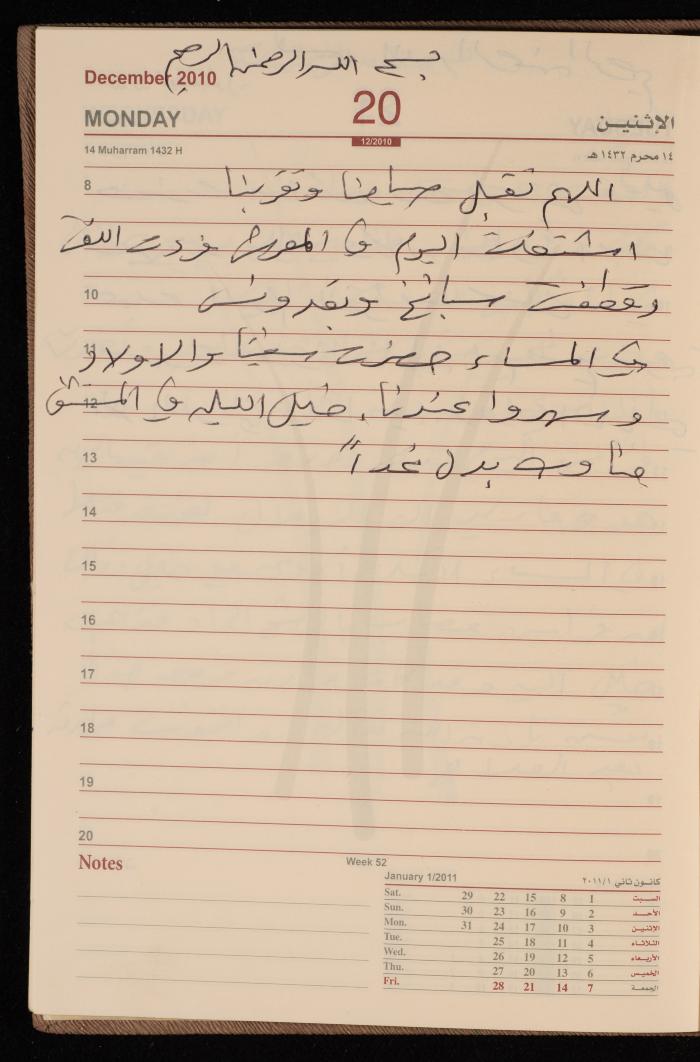 بسم الله الرحمن الرحيم
December 2010
20
MONDAY
الإثنين
12/2010
14 Muharram 1432 H
١٤ محرم ١٤٣٢ هـ
8 اللهم تقبل صيامنا وتقربنا
اشتغلت اليوم في المعرش فردت
10 وقطفت سبانخ وبقدونس
11 في المساء حضرت والاولاد
12 وسهروا عندنا. خليل الليلة في
13 مناوب بدل غداً
14
15
16
17
18
19
20
Notes
Week 52
January 1/2011
كانون ثاني ٢٠١١/١
Sat. 29 22 15 8 1 السبت
Sun. 30 23 16 9 2 الأحد
Mon. 31 24 17 10 3 الإثنين
Tue. 25 18 11 4 الثلاثاء
Wed. 26 19 12 5 الأربعاء
Thu. 27 20 13 6 الخميس
Fri. 28 21 14 7 الجمعة